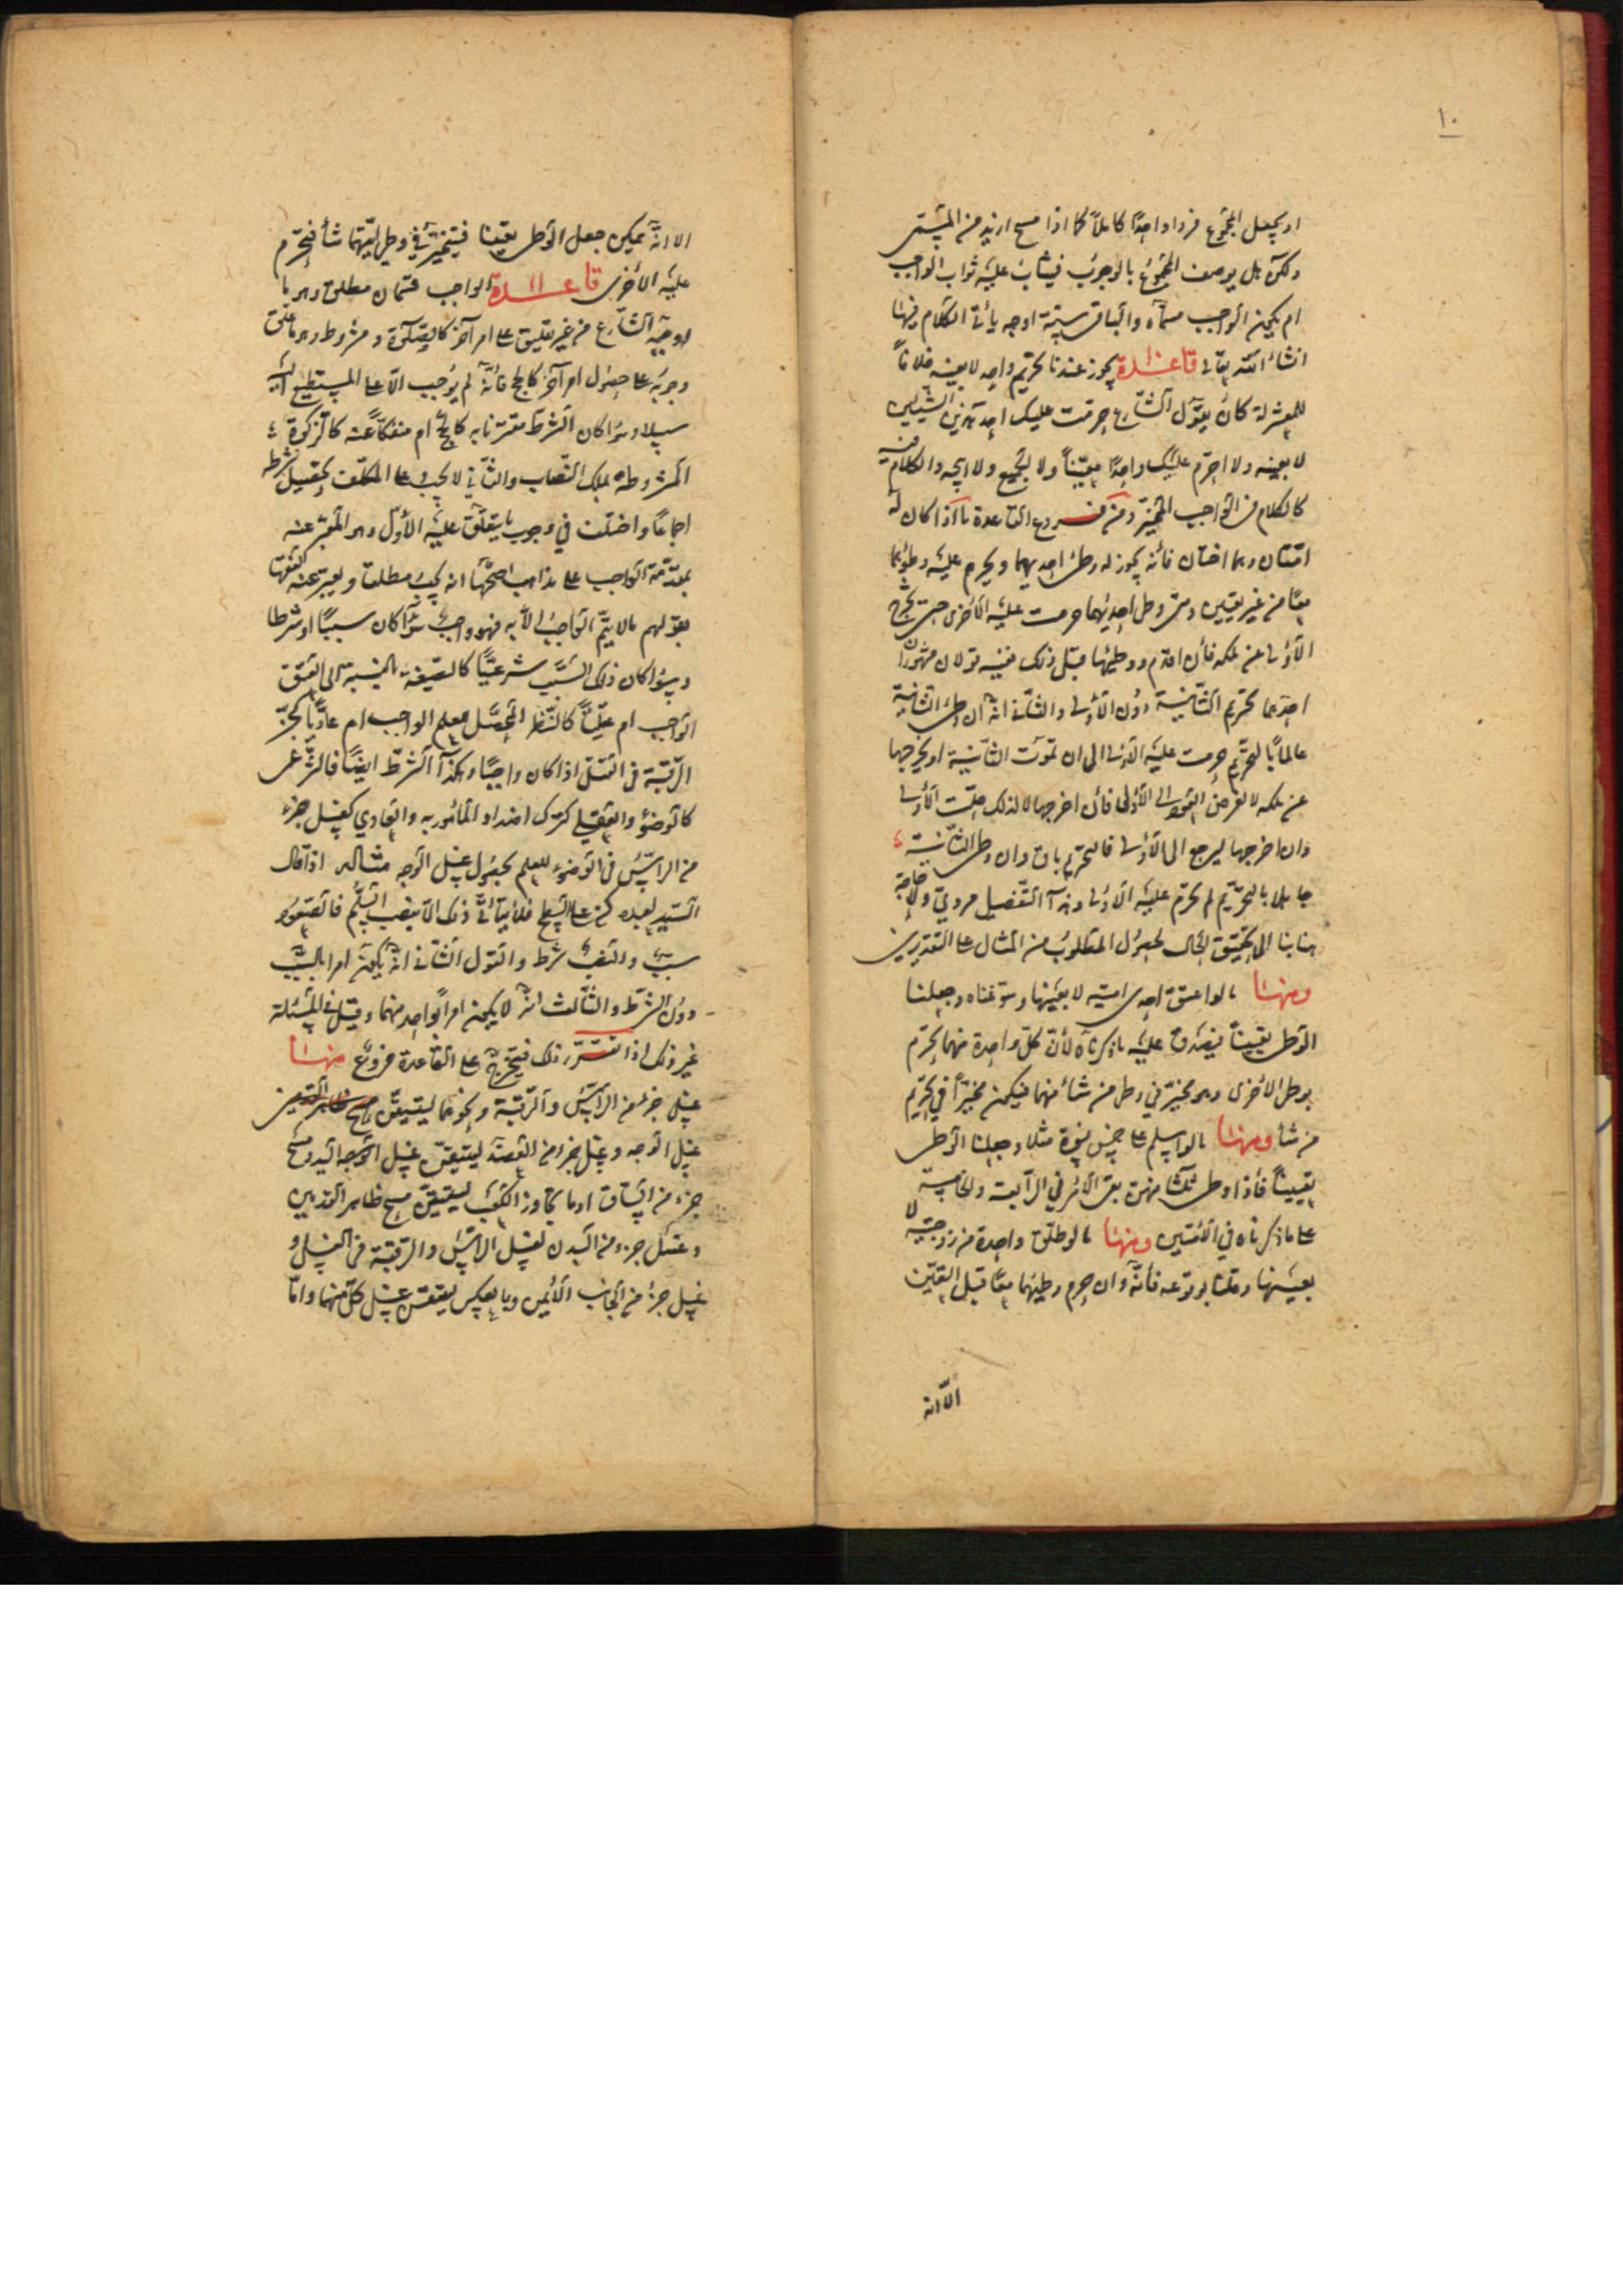 ١٠
او يجعل المجموع فردا واحدًا كاملاً كما اذا مسح ازيد من المسمّى
ولكن هل يوصف المجموع بالوجوب فيثاب عليه ثواب الواجب
ام يكون الواجب مسمّاه والباقى سنّة اوجه يأتى الكلام فيها
انشاء الله تعالى قاعدة يجوز عندنا تحريم واحد لا بعينه خلافاً
للمعتزلة كان يقول الشارع حرمت عليك احد هذين الشيئين
لا بعينه ولا احرّم عليك واحدًا معيّناً ولا الجميع ولا ابيحه والكلام فيه
كالكلام فى الواجب المخيّر ومن فروع القاعدة ما اذا كان له
امتان وهما اختان فانه يجوز له وطئ احديهما ويحرم عليه وطؤهما
معًا من غير تعيين ومتى وطئ احديهما حرمت عليه الأخرى حتى تخرج
الأولى عن ملكه فأن اقدم ووطيها قبل ذلك ففيه قولان مشهوران
احدهما تحريم الثانية دون الأولى والثانى انه ان وطئ الثانية
عالمًا بالتحريم حرمت عليه الأولى الى ان تموت الثانية او يخرجها
عن ملكه لا لغرض العود الى الأولى فأن اخرجها لا لذلك حلّت الأولى
وان اخرجها ليرجع الى الأولى فالتحريم باق وان وطئ الثانية
جاهلا بالتحريم لم تحرم عليه الأولى وهذا التفصيل مروىّ ولا حاجة
هنا بنا الى تحقيق الحال لحصول المطلوب من المثال على التقديرين
ومنها ما لو اعتق احدى امتيه لا بعينها وسوّغناه وجعلنا
الوطى تعييناً فيصدق عليه ما ذكرناه لأن كل واحدة منهما تحرم
بوطى الأخرى وهو مخيّر في وطى من شاء منهما فيكون مخيّراً في تحريم
من شاء ومنها ما لو اسلم على خمس نسوة مثلا وجعلنا الوطى
تعييناً فأذا وطى ثلثا منهن بقى الأمر في الرابعة والخامسة
على ما ذكرناه في الأمتين ومنها ما لو طلق واحدة من زوجتيه لا
بعينها وقلنا بوقوعه فأنّه وان حرم وطيهما معًا قبل التعيّن
الا انه
الا انه يمكن جعل الوطى تعيينا فيتخيّر في وطى ايّتهما شاء فتحرم
عليه الأخرى قاعدة الواجب قسمان مطلق وهو ما
اوجبه الشارع من غير تعليق على امر آخر كالصلوة ومشروط وهو ما علق
وجوبه على حصول امر آخر كالحج فأنه لم يوجب الا على المستطيع اليه
سبيلا وسواء كان الشرط مقترنا به كالحج ام منفكاً عنه كالزكوة
المشروطة بملك النصاب والثاني لا يجب على المكلف تحصيل شرطه
اجماعاً واختلف في وجوب ما يتوقف عليه الأول وهو المعبّر عنه
بمقدّمة الواجب على مذاهب اصحّها انه يجب مطلقا ويعبر عنه الفقهاء
بقولهم ما لا يتم الواجب الا به فهو واجب سواء كان سببًا او شرطا
وسواء كان ذلك السبب شرعيًّا كالصيغة بالنسبة الى العتق
الواجب ام عقليًّا كالنظر المحصّل للعلم الواجب ام عاديًّا كحزّ
الرقبة فى القتل اذا كان واجبًا وهكذا الشرط ايضًا فالشرعى
كالوضوء والعقلي كترك اضداد المأمور به والعادي كغسل جزء
من الرأس فى الوضوء للعلم بحصول غسل الوجه مثاله اذا قال
السيد لعبده كن على السطح فلا يتأتّى ذلك الا بنصب السلّم فالصعود
سبب والنصب شرط والقول الثانى انه يكون امرا بالسبب
دون الشرط والثالث انه لا يكون امراً بواحد منهما وقيل فى المسئلة
غير ذلك اذا تقرر ذلك فيتخرج على القاعدة فروع منها
غسل جزء من الرأس والرقبة ونحوهما ليتيقن
غسل الوجه وغسل جزء من العضد ليتيقن غسل الوجه اليد ومسح
جزء من الساق او ما يجاوز الكعب ليتيقن مسح ظاهر القدمين
وغسل جزء من البدن لغسل الرأس والرقبة فى الغسل و
غسل جزء من الجانب الأيمن وبالعكس ليتيقن غسل كل منهما وامّا